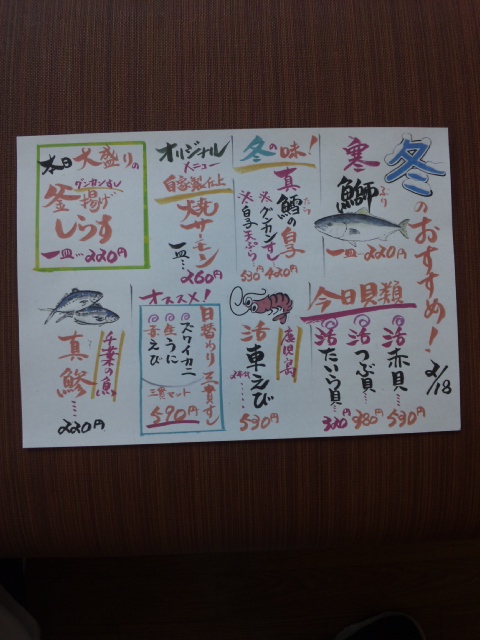 冬のおすすめ!
2/18
寒鰤
ぶり
一皿…220円
冬の味!
真鱈の白子
たら
グンカンすし
白子天ぷら
530円
420円
オリジナル
メニュー
自家製仕上
焼サーモン
一皿…
260円
本日大盛りの
グンカンすし
釜揚げ
しらす
一皿…220円
今日貝類
活赤貝…
530円
活つぶ貝…
380円
活たいら貝…
320円
鹿児島
活車えび
530円
オススメ!
日替わり三貫すし
ズワイカニ
生うに
赤えび
三貫セット
590円
千葉の魚
真鯵……
220円